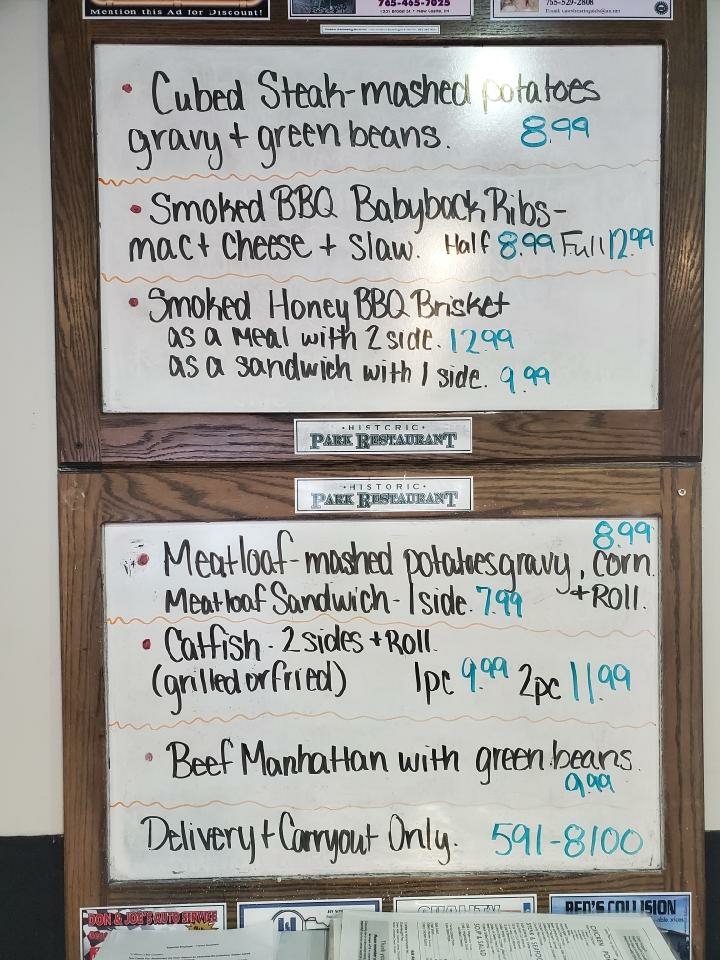 Mention this Ad for Discount!
765-465-7025
765-529-2808
• Cubed Steak-mashed potatoes
gravy + green beans. 8.99
• Smoked BBQ Babyback Ribs-
mac + cheese + slaw. Half 8.99 Full 12.99
• Smoked Honey BBQ Brisket
as a meal with 2 side. 12.99
as a sandwich with 1 side. 9.99
• HISTORIC •
PARK RESTAURANT
• HISTORIC •
PARK RESTAURANT
8.99
• Meatloaf-mashed potatoes gravy, corn
Meatloaf Sandwich-1 side. 7.99 + ROLL.
• Catfish - 2 sides + Roll.
(grilled or fried) 1pc 9.99 2pc 11.99
• Beef Manhattan with green beans.
9.99
Delivery + Carryout Only. 591-8100
DON & JOE'S AUTO SERVICE
QUALITY
RED'S COLLISION
SOUP & SALAD